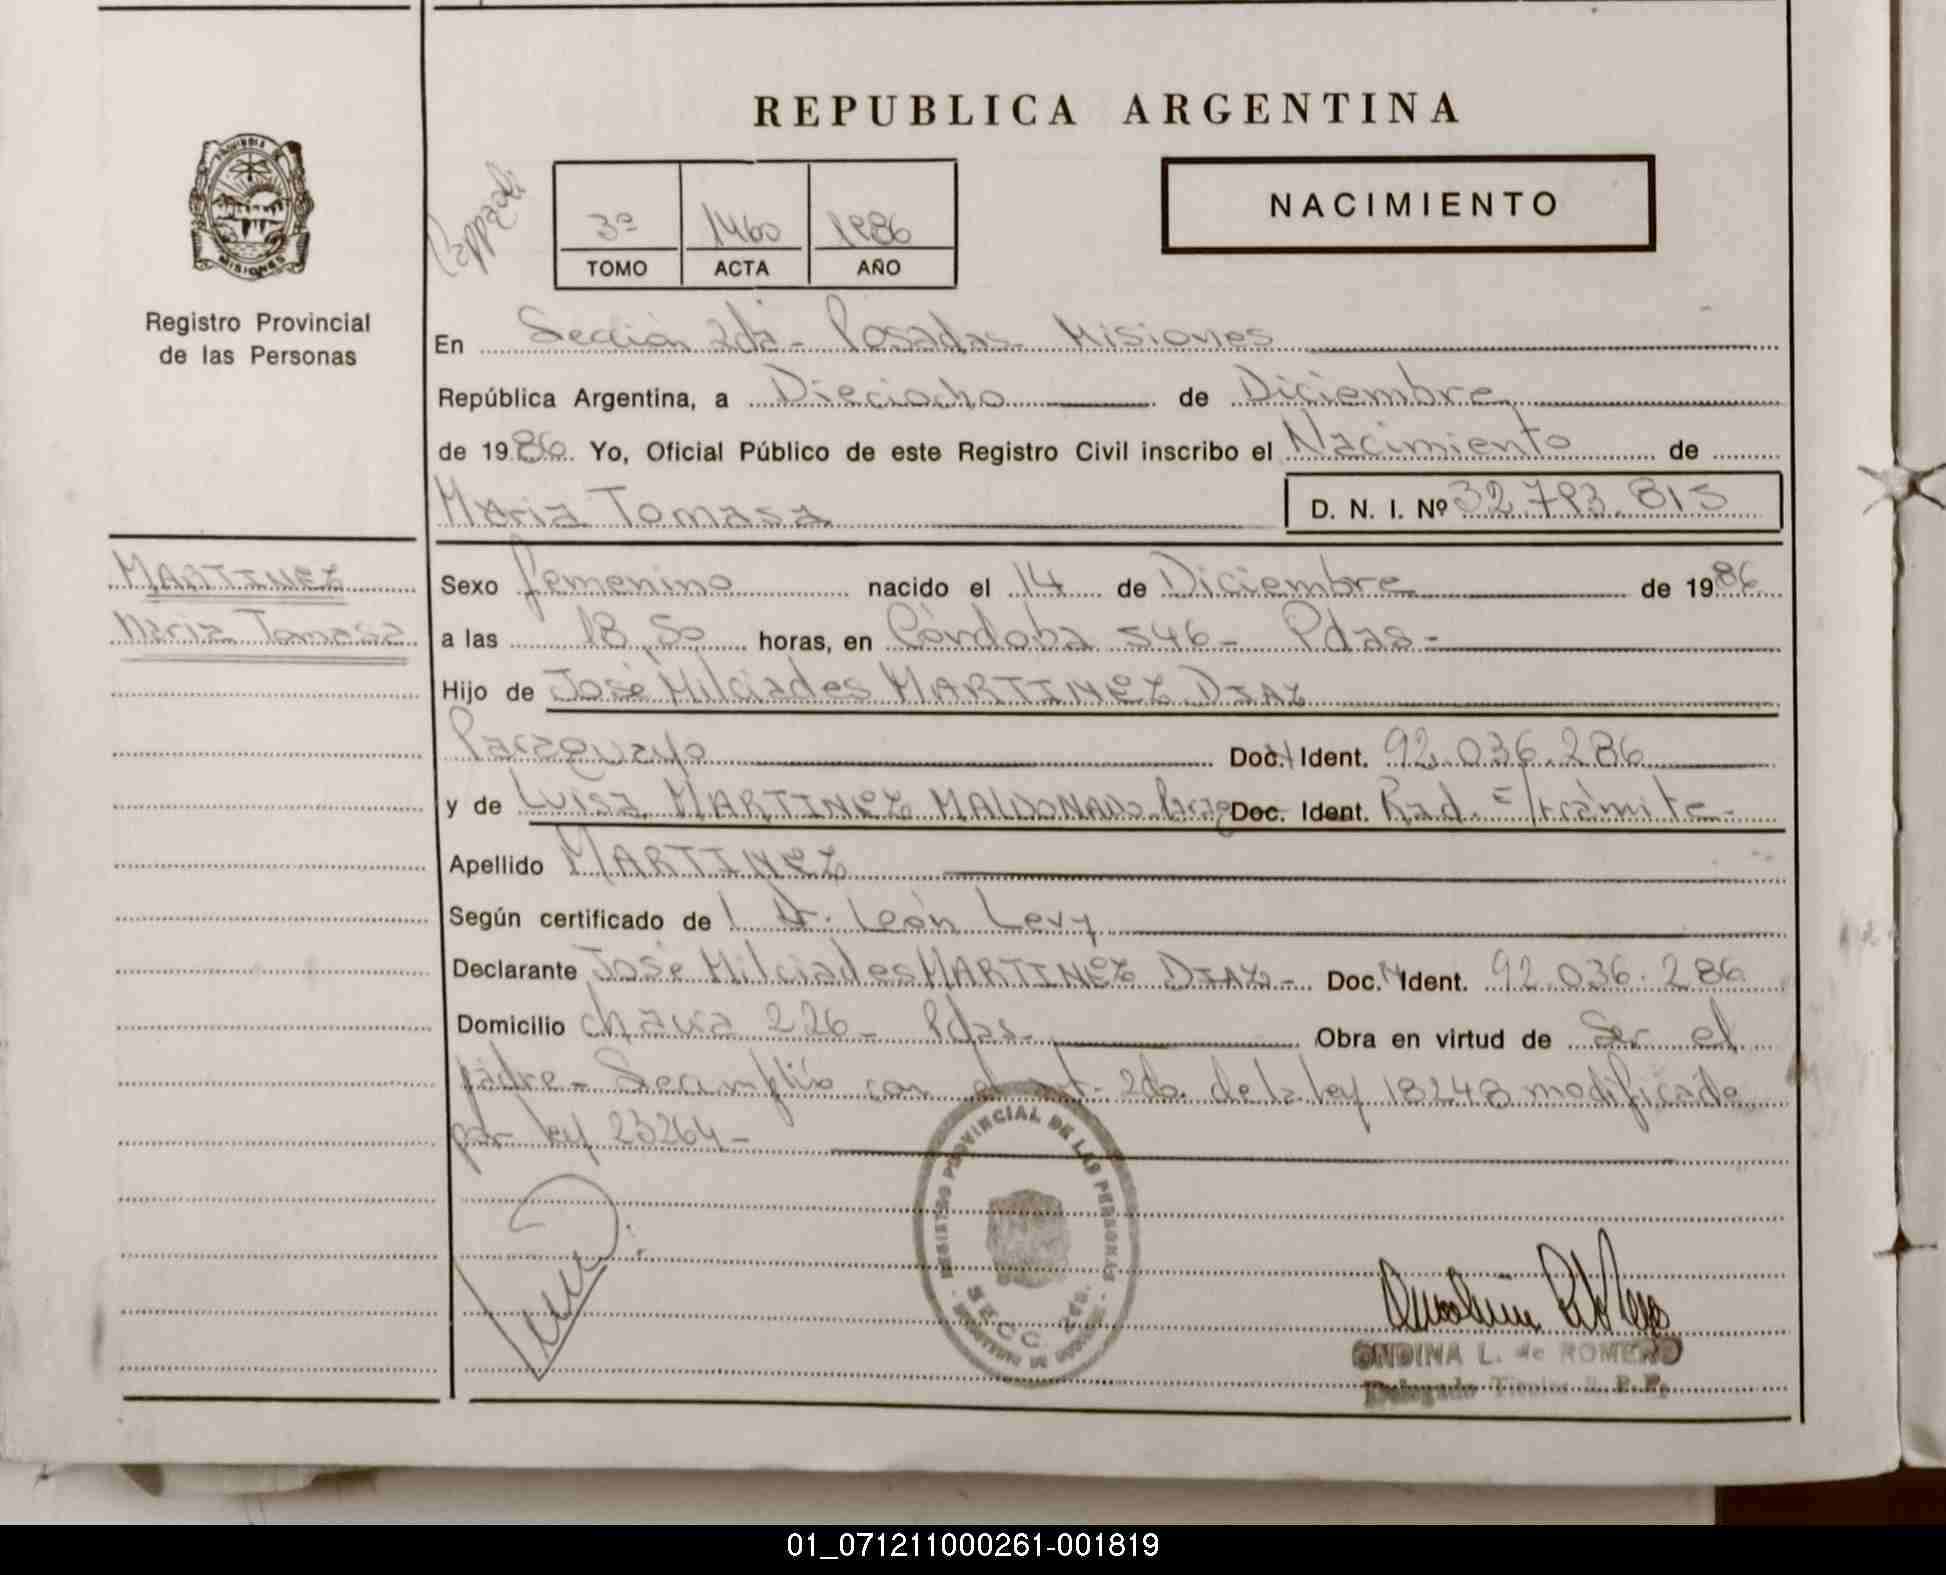 REPUBLICA ARGENTINA
PROVINCIA DE
MISIONES
Registro Provincial
de las Personas
3º 1460 1986
TOMO ACTA AÑO
NACIMIENTO
En Sección 2da - Posadas Misiones
República Argentina, a Dieciocho de Diciembre
de 1986. Yo, Oficial Público de este Registro Civil inscribo el Nacimiento de
Maria Tomasa D. N. I. Nº 32.793.815
MARTINEZ
Maria Tomasa
Sexo femenino nacido el 14 de Diciembre de 1986
a las 18,50 horas, en Córdoba 546 - Pdas -
Hijo de José Milciades MARTINEZ DIAZ
Paraguayo Doc. Ident. 92.036.286
y de Luisa MARTINEZ MALDONADO Parag Doc. Ident. Rad. E/trámite -
Apellido MARTINEZ
Según certificado de l Dr. León Levy
Declarante José Milciades MARTINEZ DIAZ - Doc. Ident. 92.036.286
Domicilio chava 226 - Pdas - Obra en virtud de Ser el
padre - Se cumplió con el art. 2do. de la ley 18248 modificada
por ley 23264 -
REGISTRO PROVINCIAL DE LAS PERSONAS
SECC. 2da.
ONDINA L. de ROMERO
Delegado Titular R. P. P.
01_071211000261-001819